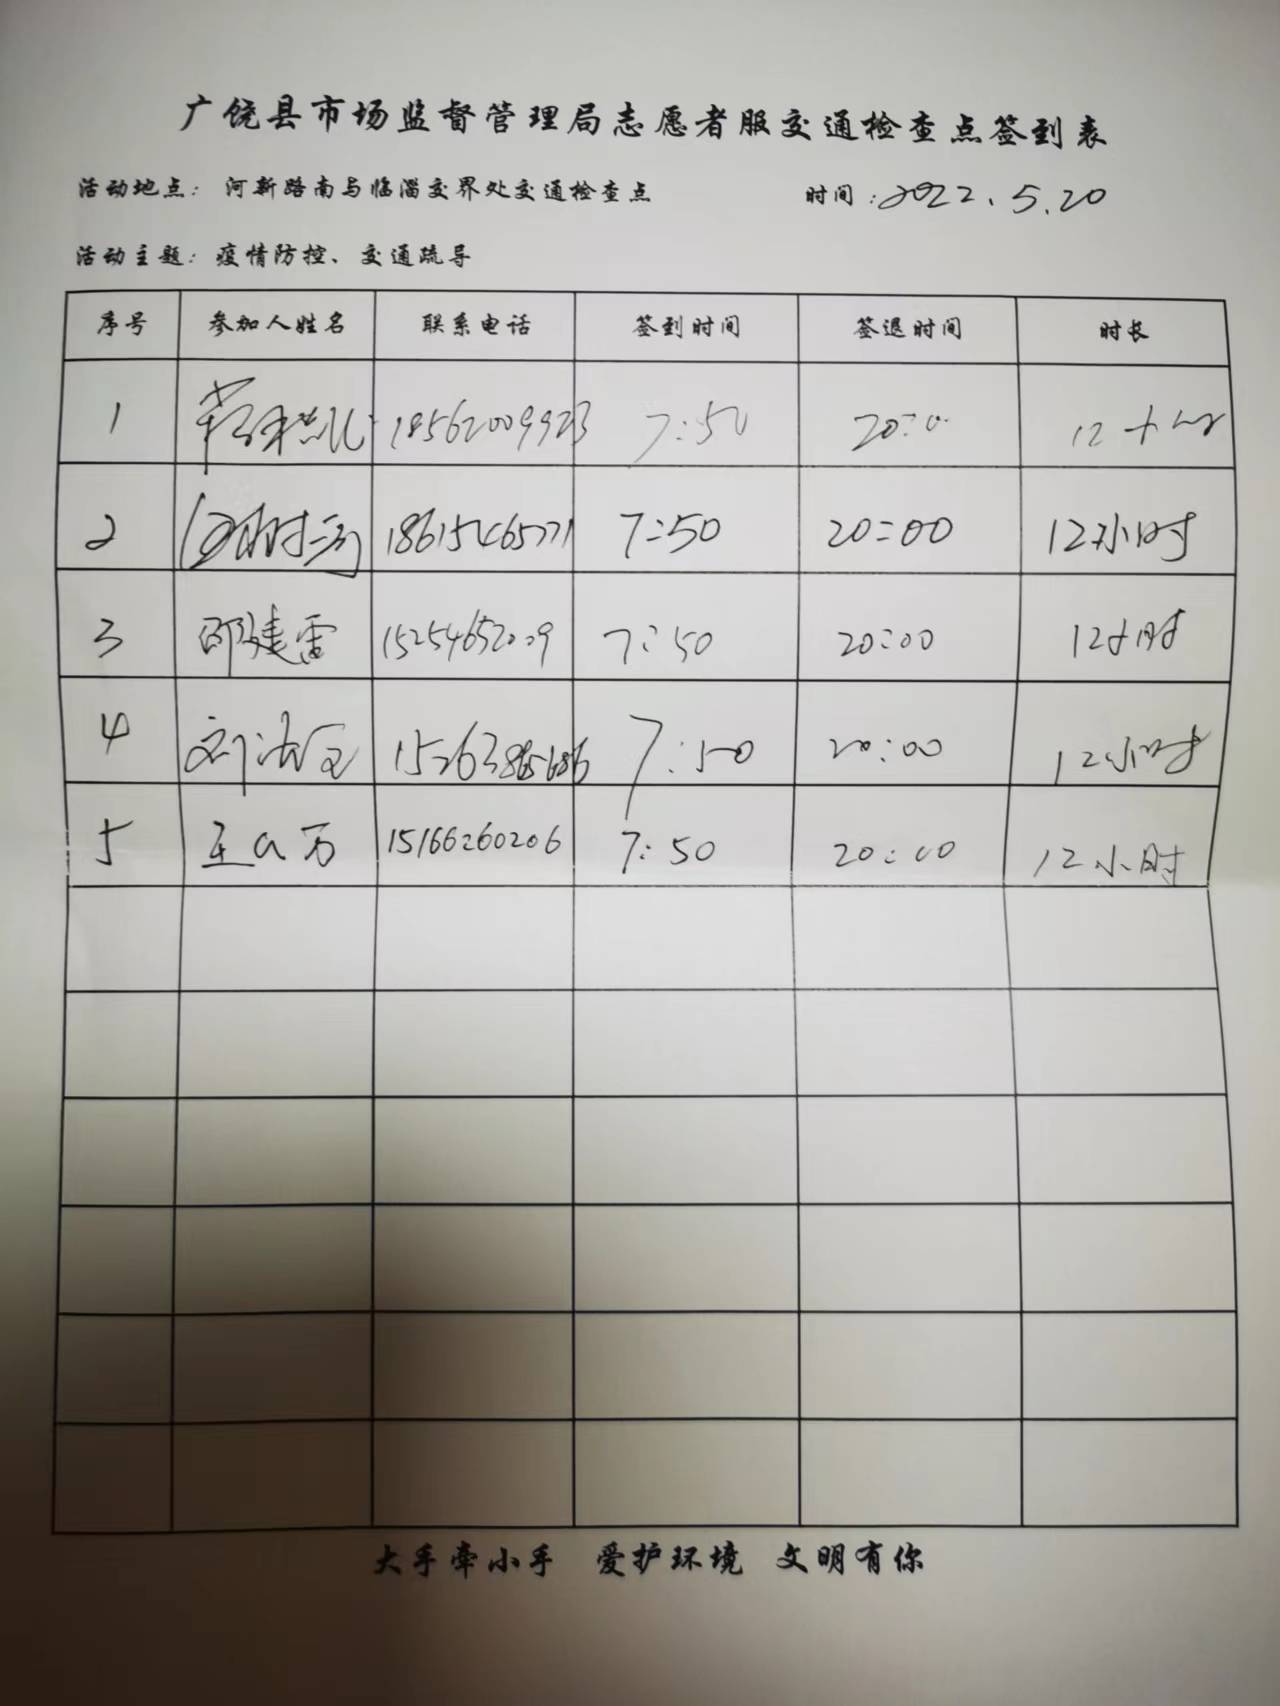 广饶县市场监督管理局志愿者服交通检查点签到表
活动地点：河新路南与临淄交界处交通检查点 时间：2022.5.20
活动主题：疫情防控、交通疏导
序号 参加人姓名 联系电话 签到时间 签退时间 时长
1 18562009923 7:50 20:0 12小时
2 18615465771 7:50 20:00 12小时
3 邵建雷 15254652009 7:50 20:00 12小时
4 15263865686 7:50 20:00 12小时
5 15166260206 7:50 20:00 12小时
大手牵小手 爱护环境 文明有你